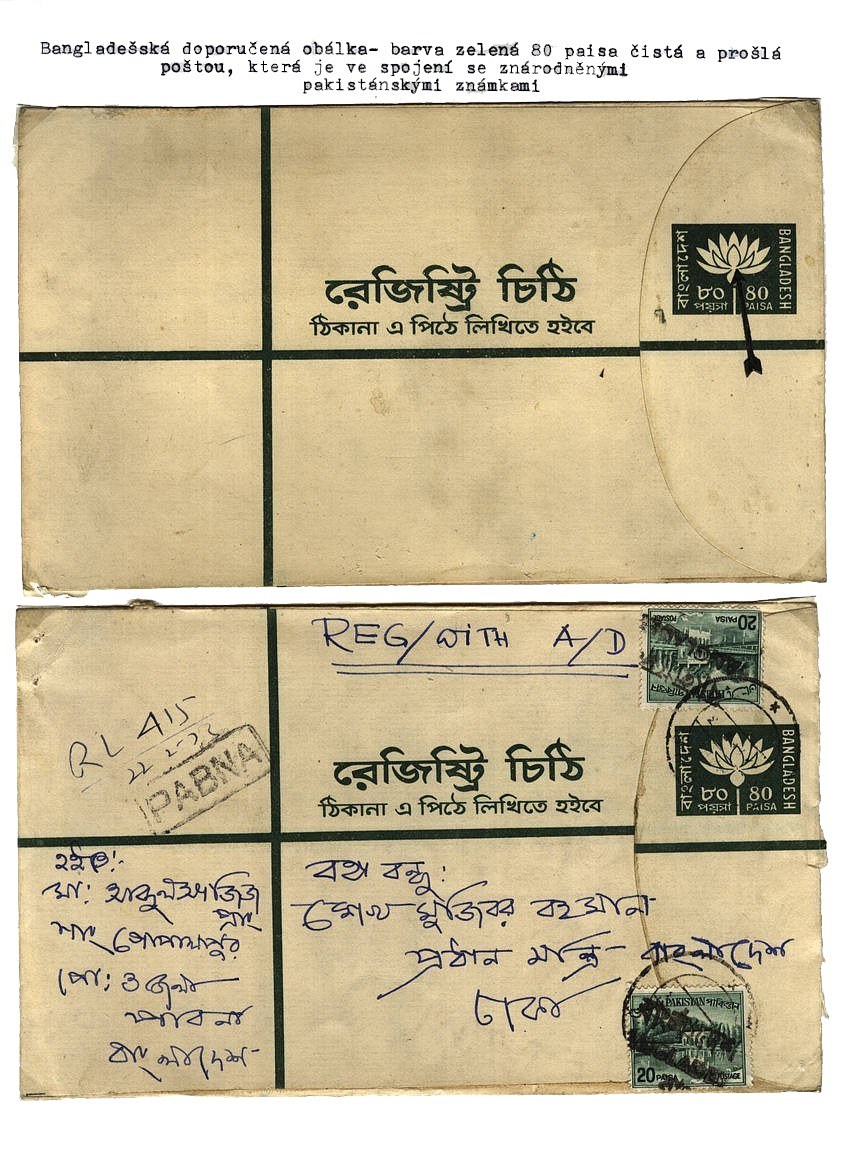 Bangladešská doporučená obálka- barva zelená 80 paisa čistá a prošlá
poštou, která je ve spojení se znárodněnými
pakistánskými známkami
বাংলাদেশ
BANGLADESH
৮০ 80
পয়সা PAISA
রেজিষ্ট্রি চিঠি
ঠিকানা এ পিঠে লিখিতে হইবে
REG/WITH A/D
20
PAISA
POSTAGE
RL 415
PABNA
বাংলাদেশ
BANGLADESH
৮০ 80
পয়সা PAISA
রেজিষ্ট্রি চিঠি
ঠিকানা এ পিঠে লিখিতে হইবে
হইতে:-
গোপালপুর
পাবনা
বাংলাদেশ
বঙ্গ বন্ধু:
শেখ মুজিবর রহমান
প্রধান মন্ত্রি- বাংলাদেশ
ঢাকা
PAKISTAN পাকিস্তান
20 PAISA POSTAGE